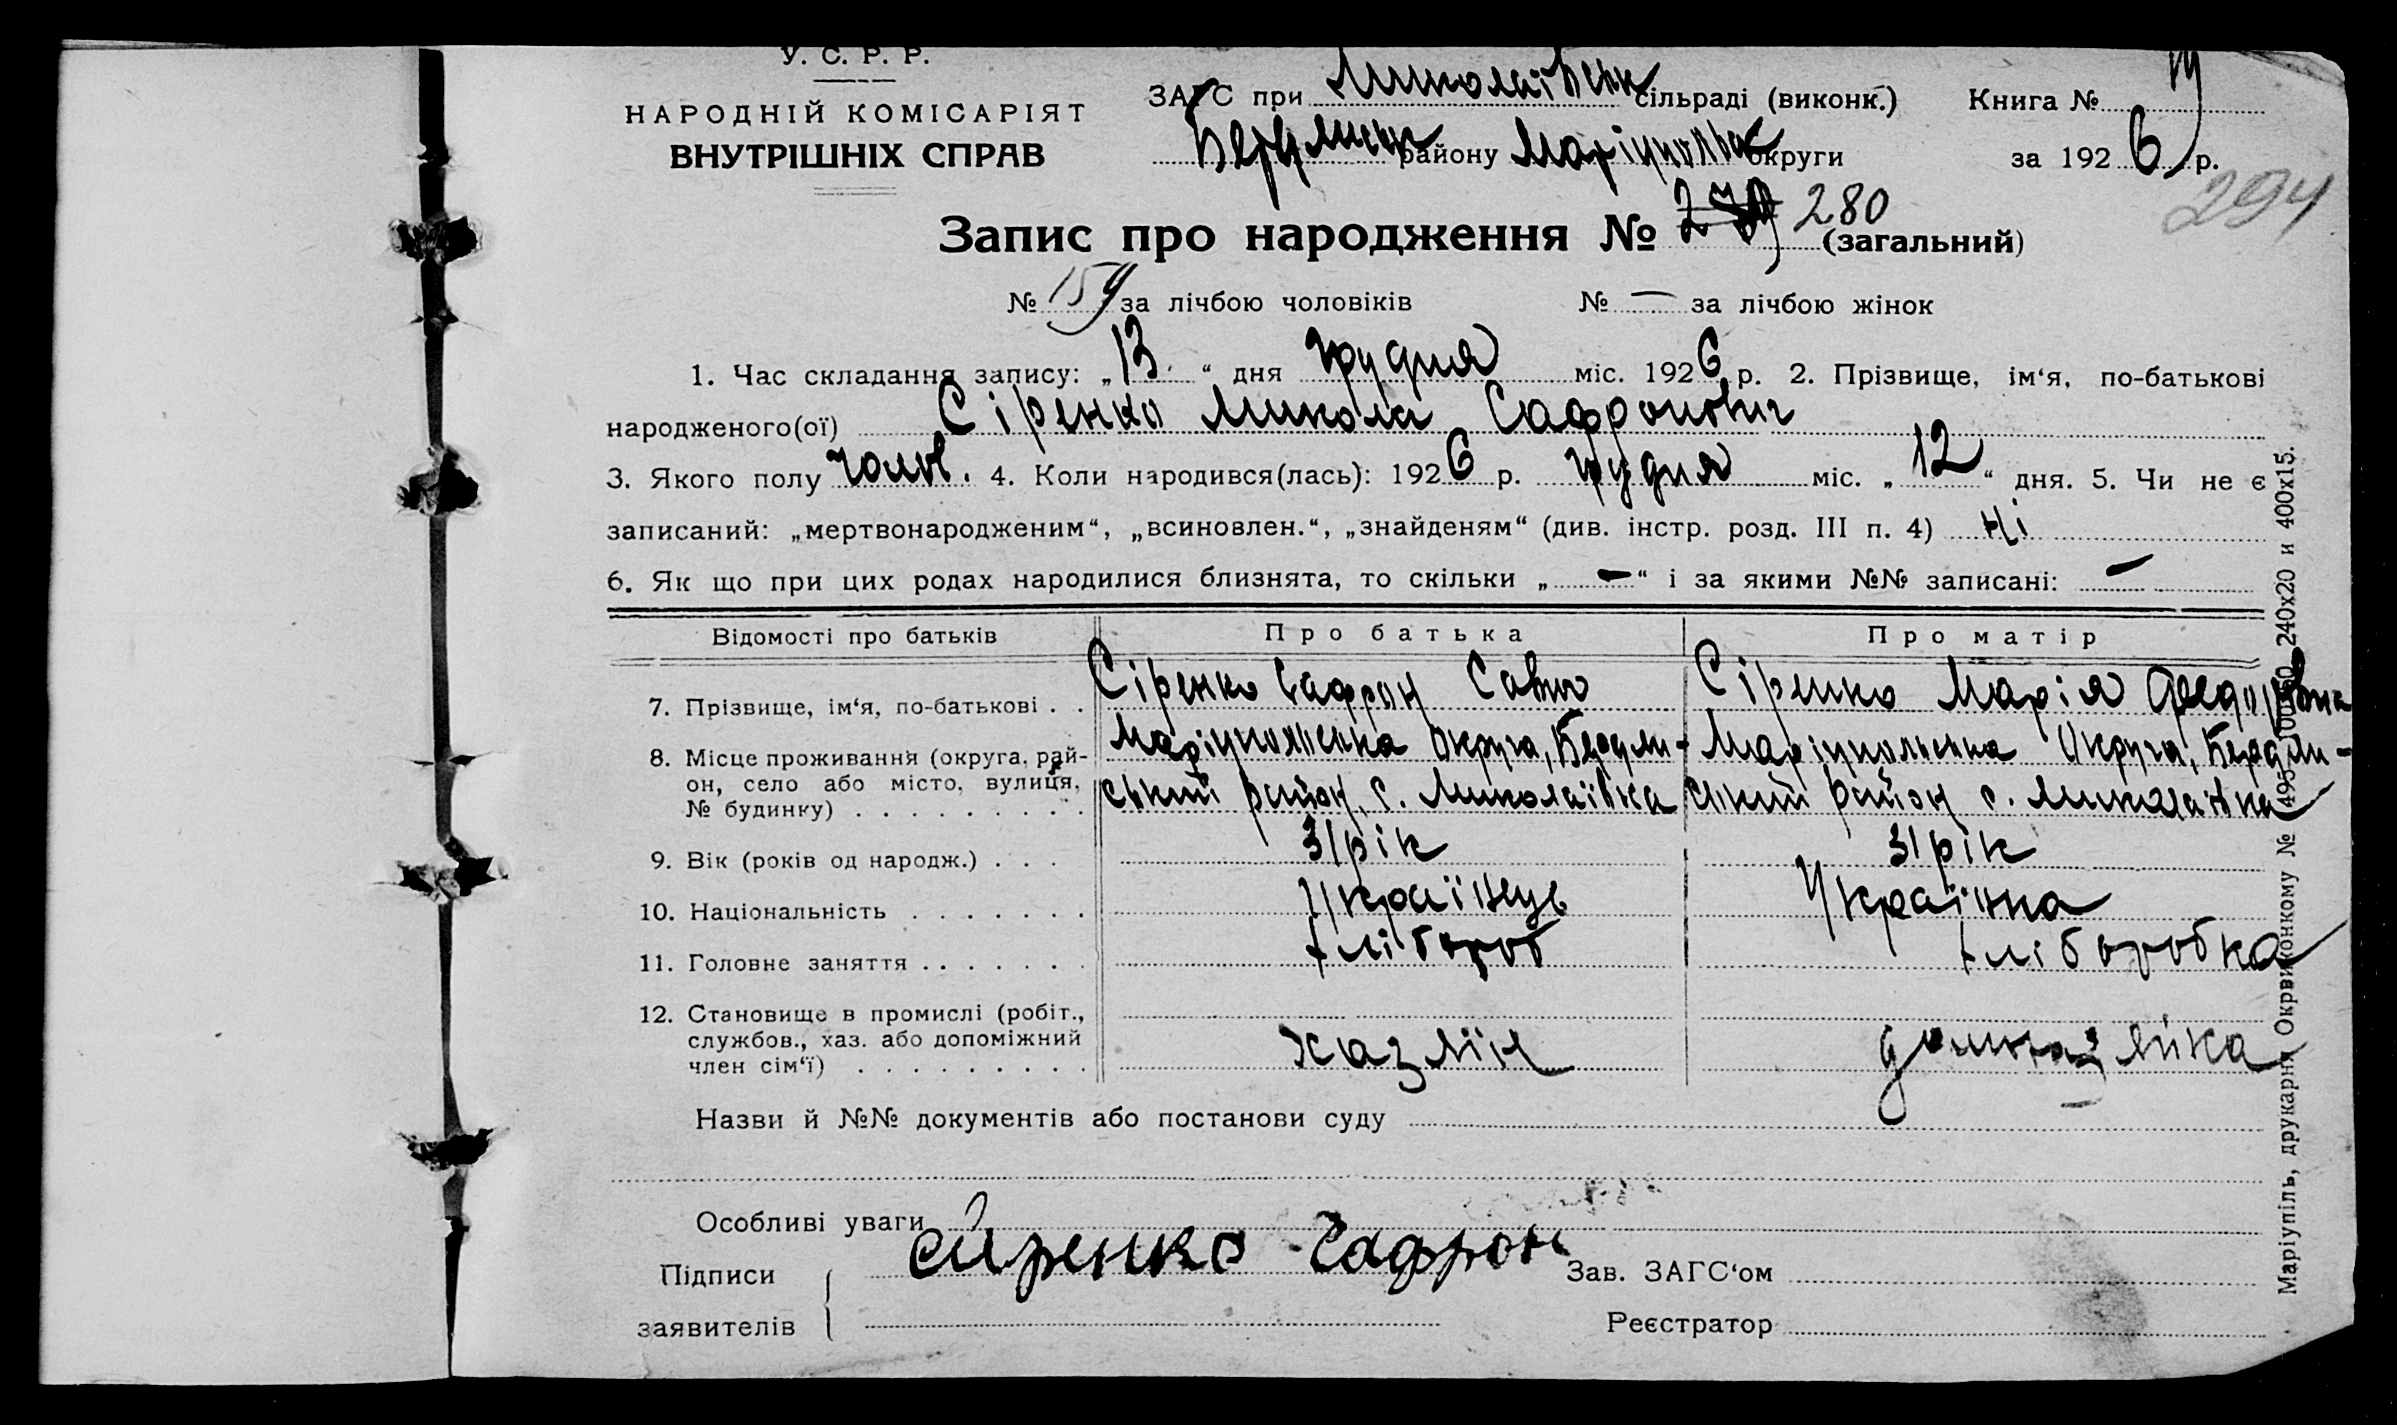 У. С. Р. Р.
НАРОДНІЙ КОМІСАРІЯТ
ВНУТРІШНІХ СПРАВ
ЗАГС при Миколаївськ сільраді (виконк.) Книга №
району Маріупольськ округи за 1926 р.
294
Запис про народження № 280 (загальний)
№ 159 за лічбою чоловіків № — за лічбою жінок
1. Час складання запису: „13“ дня грудня міс. 1926 р. 2. Прізвище, ім‘я, по-батькові
народженого(ої) Сіренко Микола Сафронович
3. Якого полу чолов. 4. Коли народився(лась): 1926 р. грудня міс. „12“ дня. 5. Чи не є
записаний: „мертвонародженим“, „всиновлен.“, „знайденям“ (див. інстр. розд. III п. 4) Ні
6. Як що при цих родах народилися близнята, то скільки „—“ і за якими №№ записані: —
Відомості про батьків Про батька Про матір
7. Прізвище, ім‘я, по-батькові . . Сіренко Сафрон Савич Сіренко Марія Федоровна
8. Місце проживання (округа, рай-
он, село або місто, вулиця,
№ будинку) . . . . . . . . .
Маріупольська Округа,
ський район, с. Миколаївка
Маріупольська Округа,
ський район с. Миколаївка
9. Вік (років од народж.) . . . 31 рік 31 рік
10. Національність . . . . . . . Українець Українка
11. Головне заняття . . . . . . . хлібороб хліборобка
12. Становище в промислі (робіт.,
службов., хаз. або допоміжний
член сім‘ї) . . . . . . . . .
хазяїн домхазяйка
Назви й №№ документів або постанови суду
Особливі уваги
Підписи
заявителів
Сіренко Сафрон
Зав. ЗАГС‘ом
Реєстратор
Маріупіль, друкарня Окрвиконкому № 240x20 и 400x15.